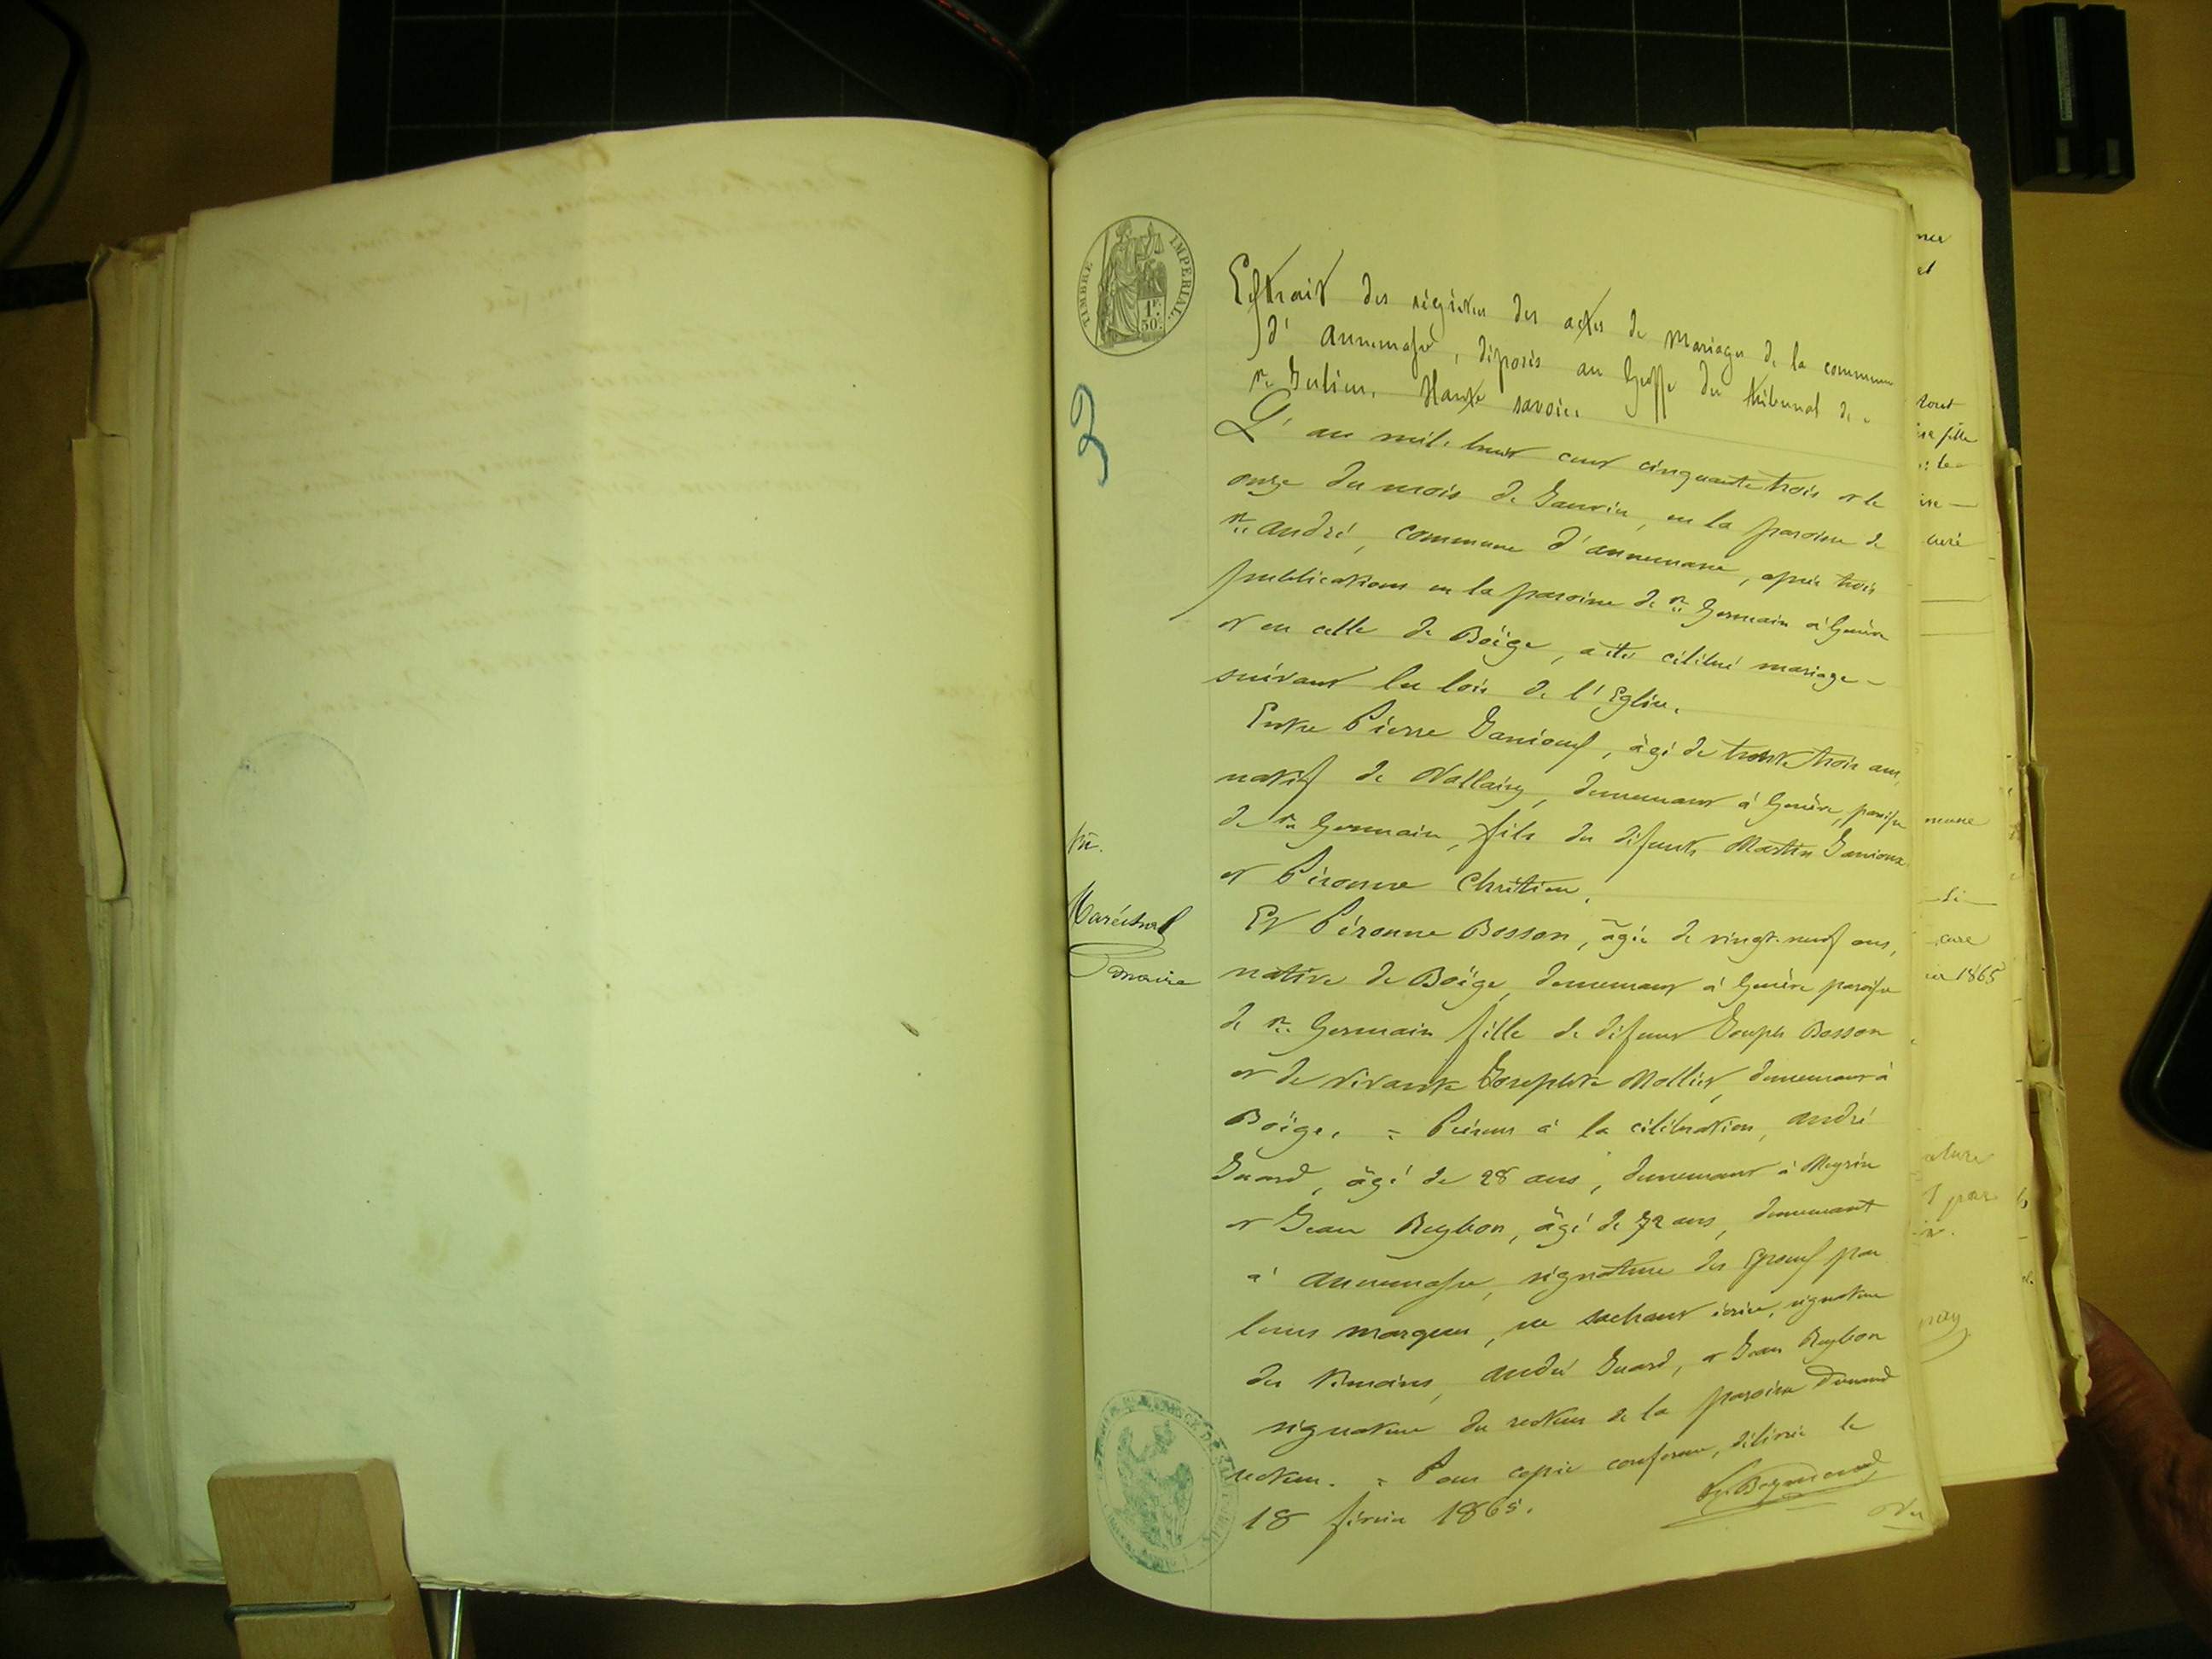 TIMBRE IMPERIAL
1F. 50C.
3
Extrait des régistres des actes de Mariages de la commune
d'Annemasse, déposés au Greffe du tribunal de
St. Julien. Haute savoie.
L'an mil huit cent cinquante trois et le
onze du mois de Janvier, en la paroisse de
St. André, commune d'annemasse, après trois
publications en la paroisse de St. Germain à Genève
et en celle de Boëge, a été célébré mariage
suivant les lois de l'Eglise.
Entre Pierre Janioux, âgé de trente trois ans,
natif de Vallairy, demeurant à Genève, paroisse
de St. Germain, fils des défunts Martin Janioux
et Péronne Chrétien.
Et Péronne Bosson, âgée de vingt-neuf ans,
native de Boëge, demeurant à Genève paroisse
de St. Germain fille de défunt Joseph Bosson
et de vivante Josephte Mollier, demeurant à
Boëge. = Présens à la célébration, André
Suard, âgé de 28 ans, demeurant à Meyrin
et Jean Reybon, âgé de 72 ans, demeurant
à Annemasse, signature des Epoux par
leurs marques, ne sachant écrire, signature
des témoins, André Suard, et Jean Reybon
signature du recteur de la paroisse Dunand
recteur. = Pour copie conforme, délivrée le
18 février 1865.
pr.
Maréchal
maire
tout
fille
curé
cure
1865
par